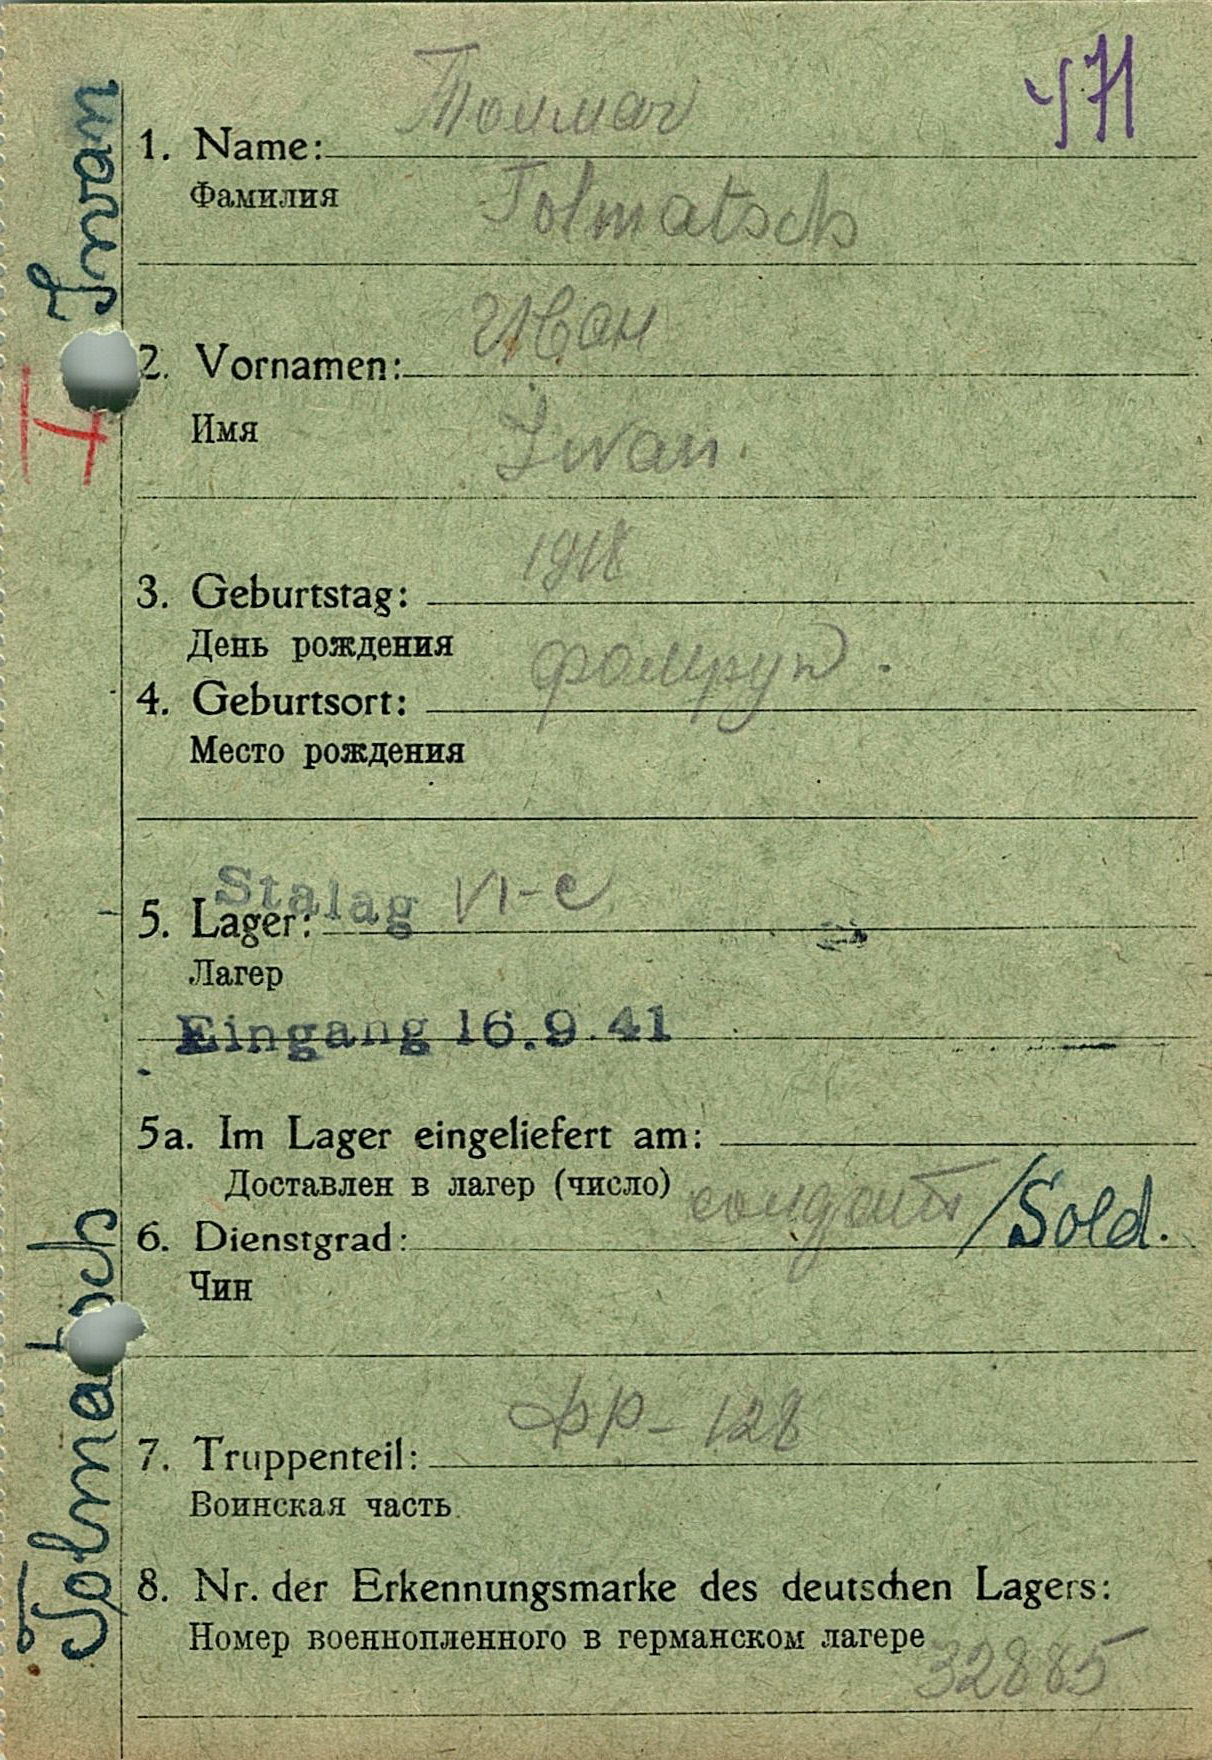 471
Толмач
1. Name:
Фамилия
Tolmatsch
Иван
2. Vornamen:
Имя
Iwan.
1918
3. Geburtstag:
День рождения
4. Geburtsort:
Место рождения
Stalag VI-C
5. Lager:
Лагер
Eingang 16.9.41
5a. Im Lager eingeliefert am:
Доставлен в лагер (число)
солдат /Sold.
6. Dienstgrad:
Чин
128
7. Truppenteil:
Воинская часть
8. Nr. der Erkennungsmarke des deutschen Lagers:
Номер военнопленного в германском лагере
32885
Tolmatsch Iwan